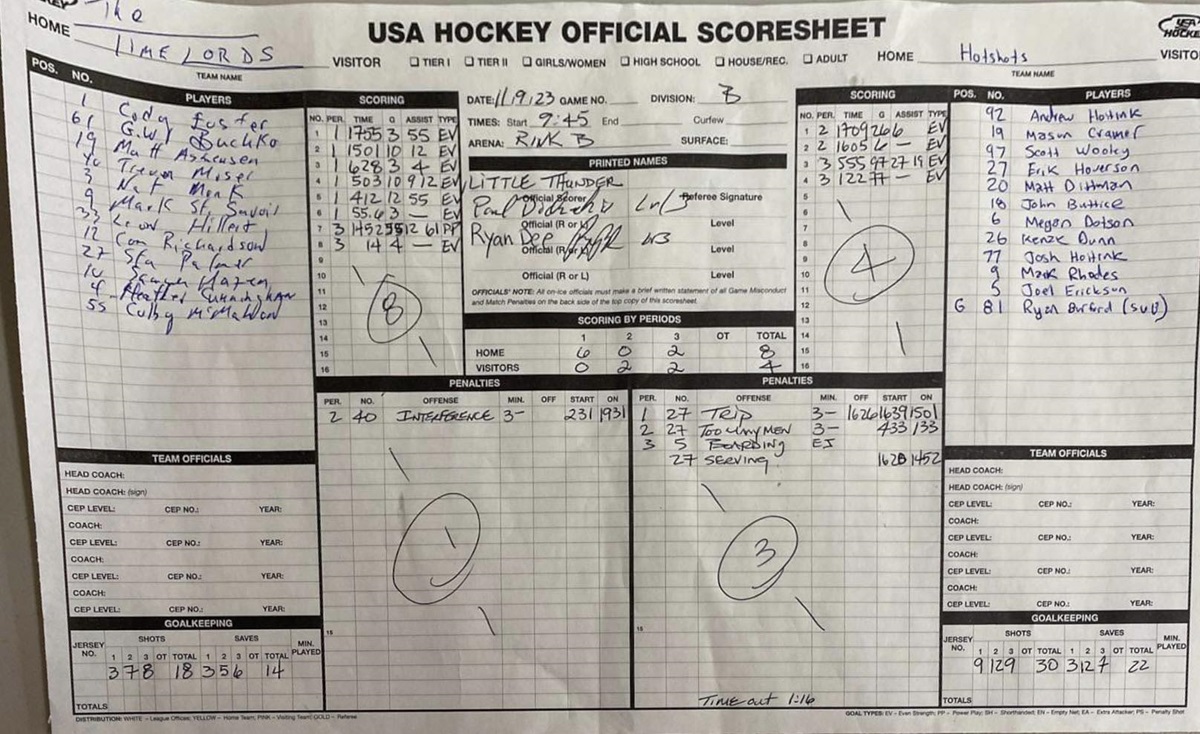 The
HOME TIME LORDS
TEAM NAME
USA HOCKEY OFFICIAL SCORESHEET
VISITOR ☐ TIER I ☐ TIER II ☐ GIRLS/WOMEN ☐ HIGH SCHOOL ☐ HOUSE/REC. ☐ ADULT HOME Hotshots
TEAM NAME
POS. NO. PLAYERS
1 Cody Foster
61 G.W. Buchko
19 Matt
40 Trevor Moser
3 Nat Monk
9 Mark St.
33 Hillert
12 Cam Richardson
27 Palmer
10
4 Heather
55 Colby McMahon
SCORING
NO. PER. TIME G ASSIST TYPE
1 1 1755 3 55 EV
2 1 1501 10 12 EV
3 1 628 3 4 EV
4 1 503 10 9 12 EV
5 1 412 12 55 EV
6 1 55.6 3 — EV
7 3 1452 55 12 61 PP
8 3 14 4 — EV
9
10
11
12
13
14
15
16
8
DATE: 11/9/23 GAME NO. DIVISION: B
TIMES: Start 9:45 End Curfew
ARENA: RINK B SURFACE:
PRINTED NAMES
LITTLE THUNDER
Official Scorer Referee Signature
Paul
Official (R or L) Level
Ryan Dee
Official (R or L) Level
Official (R or L) Level
OFFICIALS' NOTE: All on-ice officials must make a brief written statement of all Game Misconduct
and Match Penalties on the back side of the top copy of this scoresheet.
SCORING BY PERIODS
1 2 3 OT TOTAL
HOME 6 0 2 8
VISITORS 0 2 2 4
SCORING
NO. PER. TIME G ASSIST TYPE
1 2 1709 26 6 EV
2 2 1605 6 — EV
3 3 555 97 27 19 EV
4 3 122 77 — EV
5
6
7
8
9
10
11
12
13
14
15
16
4
POS. NO. PLAYERS
92 Andrew Hoitink
19 Mason Cramer
97 Scott Wooley
27 Erik Hoverson
20 Matt Dittman
18 John Buttice
6 Megan Dotson
26 Kenzk Dunn
77 Josh Hoitink
9 Mark Rhodes
5 Joel Erickson
G 81 Ryan Burford (sub)
PENALTIES
PER. NO. OFFENSE MIN. OFF START ON
2 40 INTERFERENCE 3- 231 1931
1
15
PENALTIES
PER. NO. OFFENSE MIN. OFF START ON
1 27 TRIP 3- 1626 1639 1501
2 27 TOO MNY MEN 3- 433 133
3 5 BOARDING EJ
27 SERVING 1628 1452
3
15
Time out 1:16
TEAM OFFICIALS
HEAD COACH:
HEAD COACH: (sign)
CEP LEVEL: CEP NO.: YEAR:
COACH:
CEP LEVEL: CEP NO.: YEAR:
COACH:
CEP LEVEL: CEP NO.: YEAR:
COACH:
CEP LEVEL: CEP NO.: YEAR:
GOALKEEPING
JERSEY NO. SHOTS SAVES MIN. PLAYED
1 2 3 OT TOTAL 1 2 3 OT TOTAL
3 7 8 18 3 5 6 14
TOTALS
TEAM OFFICIALS
HEAD COACH:
HEAD COACH: (sign)
CEP LEVEL: CEP NO.: YEAR:
COACH:
CEP LEVEL: CEP NO.: YEAR:
COACH:
CEP LEVEL: CEP NO.: YEAR:
COACH:
CEP LEVEL: CEP NO.: YEAR:
GOALKEEPING
JERSEY NO. SHOTS SAVES MIN. PLAYED
1 2 3 OT TOTAL 1 2 3 OT TOTAL
9 12 9 30 3 12 7 22
TOTALS
DISTRIBUTION: WHITE – League Offices; YELLOW – Home Team; PINK – Visiting Team; GOLD – Referee
GOAL TYPES: EV – Even Strength; PP – Power Play; SH – Shorthanded; EN – Empty Net; EA – Extra Attacker; PS – Penalty Shot